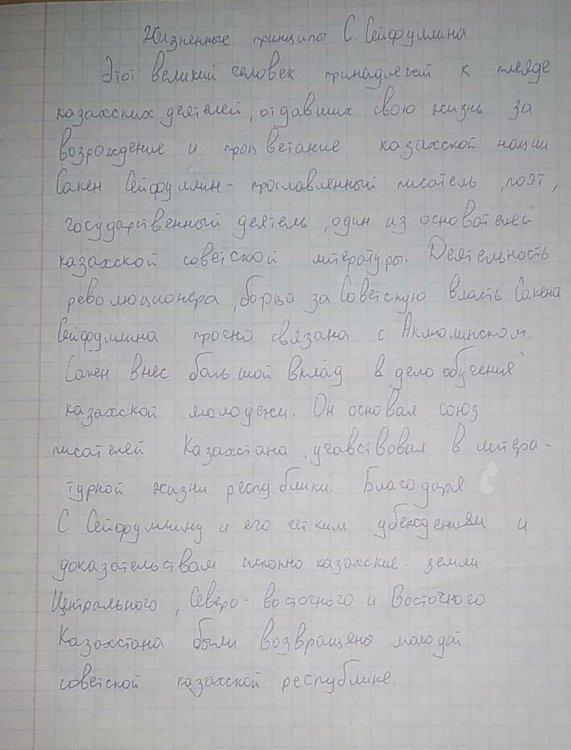 Жизненные принципы С. Сейфуллина
Этот великий человек принадлежит к плеяде
казахских деятелей, отдавших свою жизнь за
возрождение и процветание казахской нации
Сакен Сейфуллин - прославленный писатель, поэт,
государственный деятель, один из основателей
казахской советской литературы. Деятельность
революционера, борца за Советскую власть Сакена
Сейфуллина прочно связана с Акмолинском.
Сакен внес большой вклад в дело обучения
казахской молодежи. Он основал союз
писателей Казахстана, учавствовал в литера-
турной жизни республики. Благодаря
С. Сейфуллину и его четким убеждениям и
доказательствам исконно казахские земли
Центрального, Северо-восточного и Восточного
Казахстана были возвращены молодой
советской казахской республике.